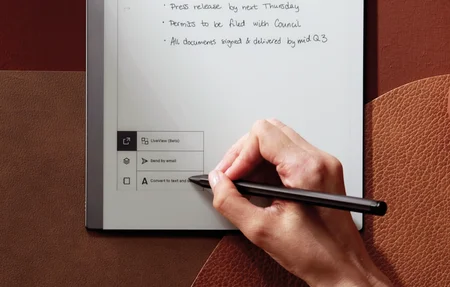 · Press release by next Thursday
· Permits to be filed with Council
· All documents signed & delivered by mid Q3
LiveView (Beta)
Send by email
Convert to text and